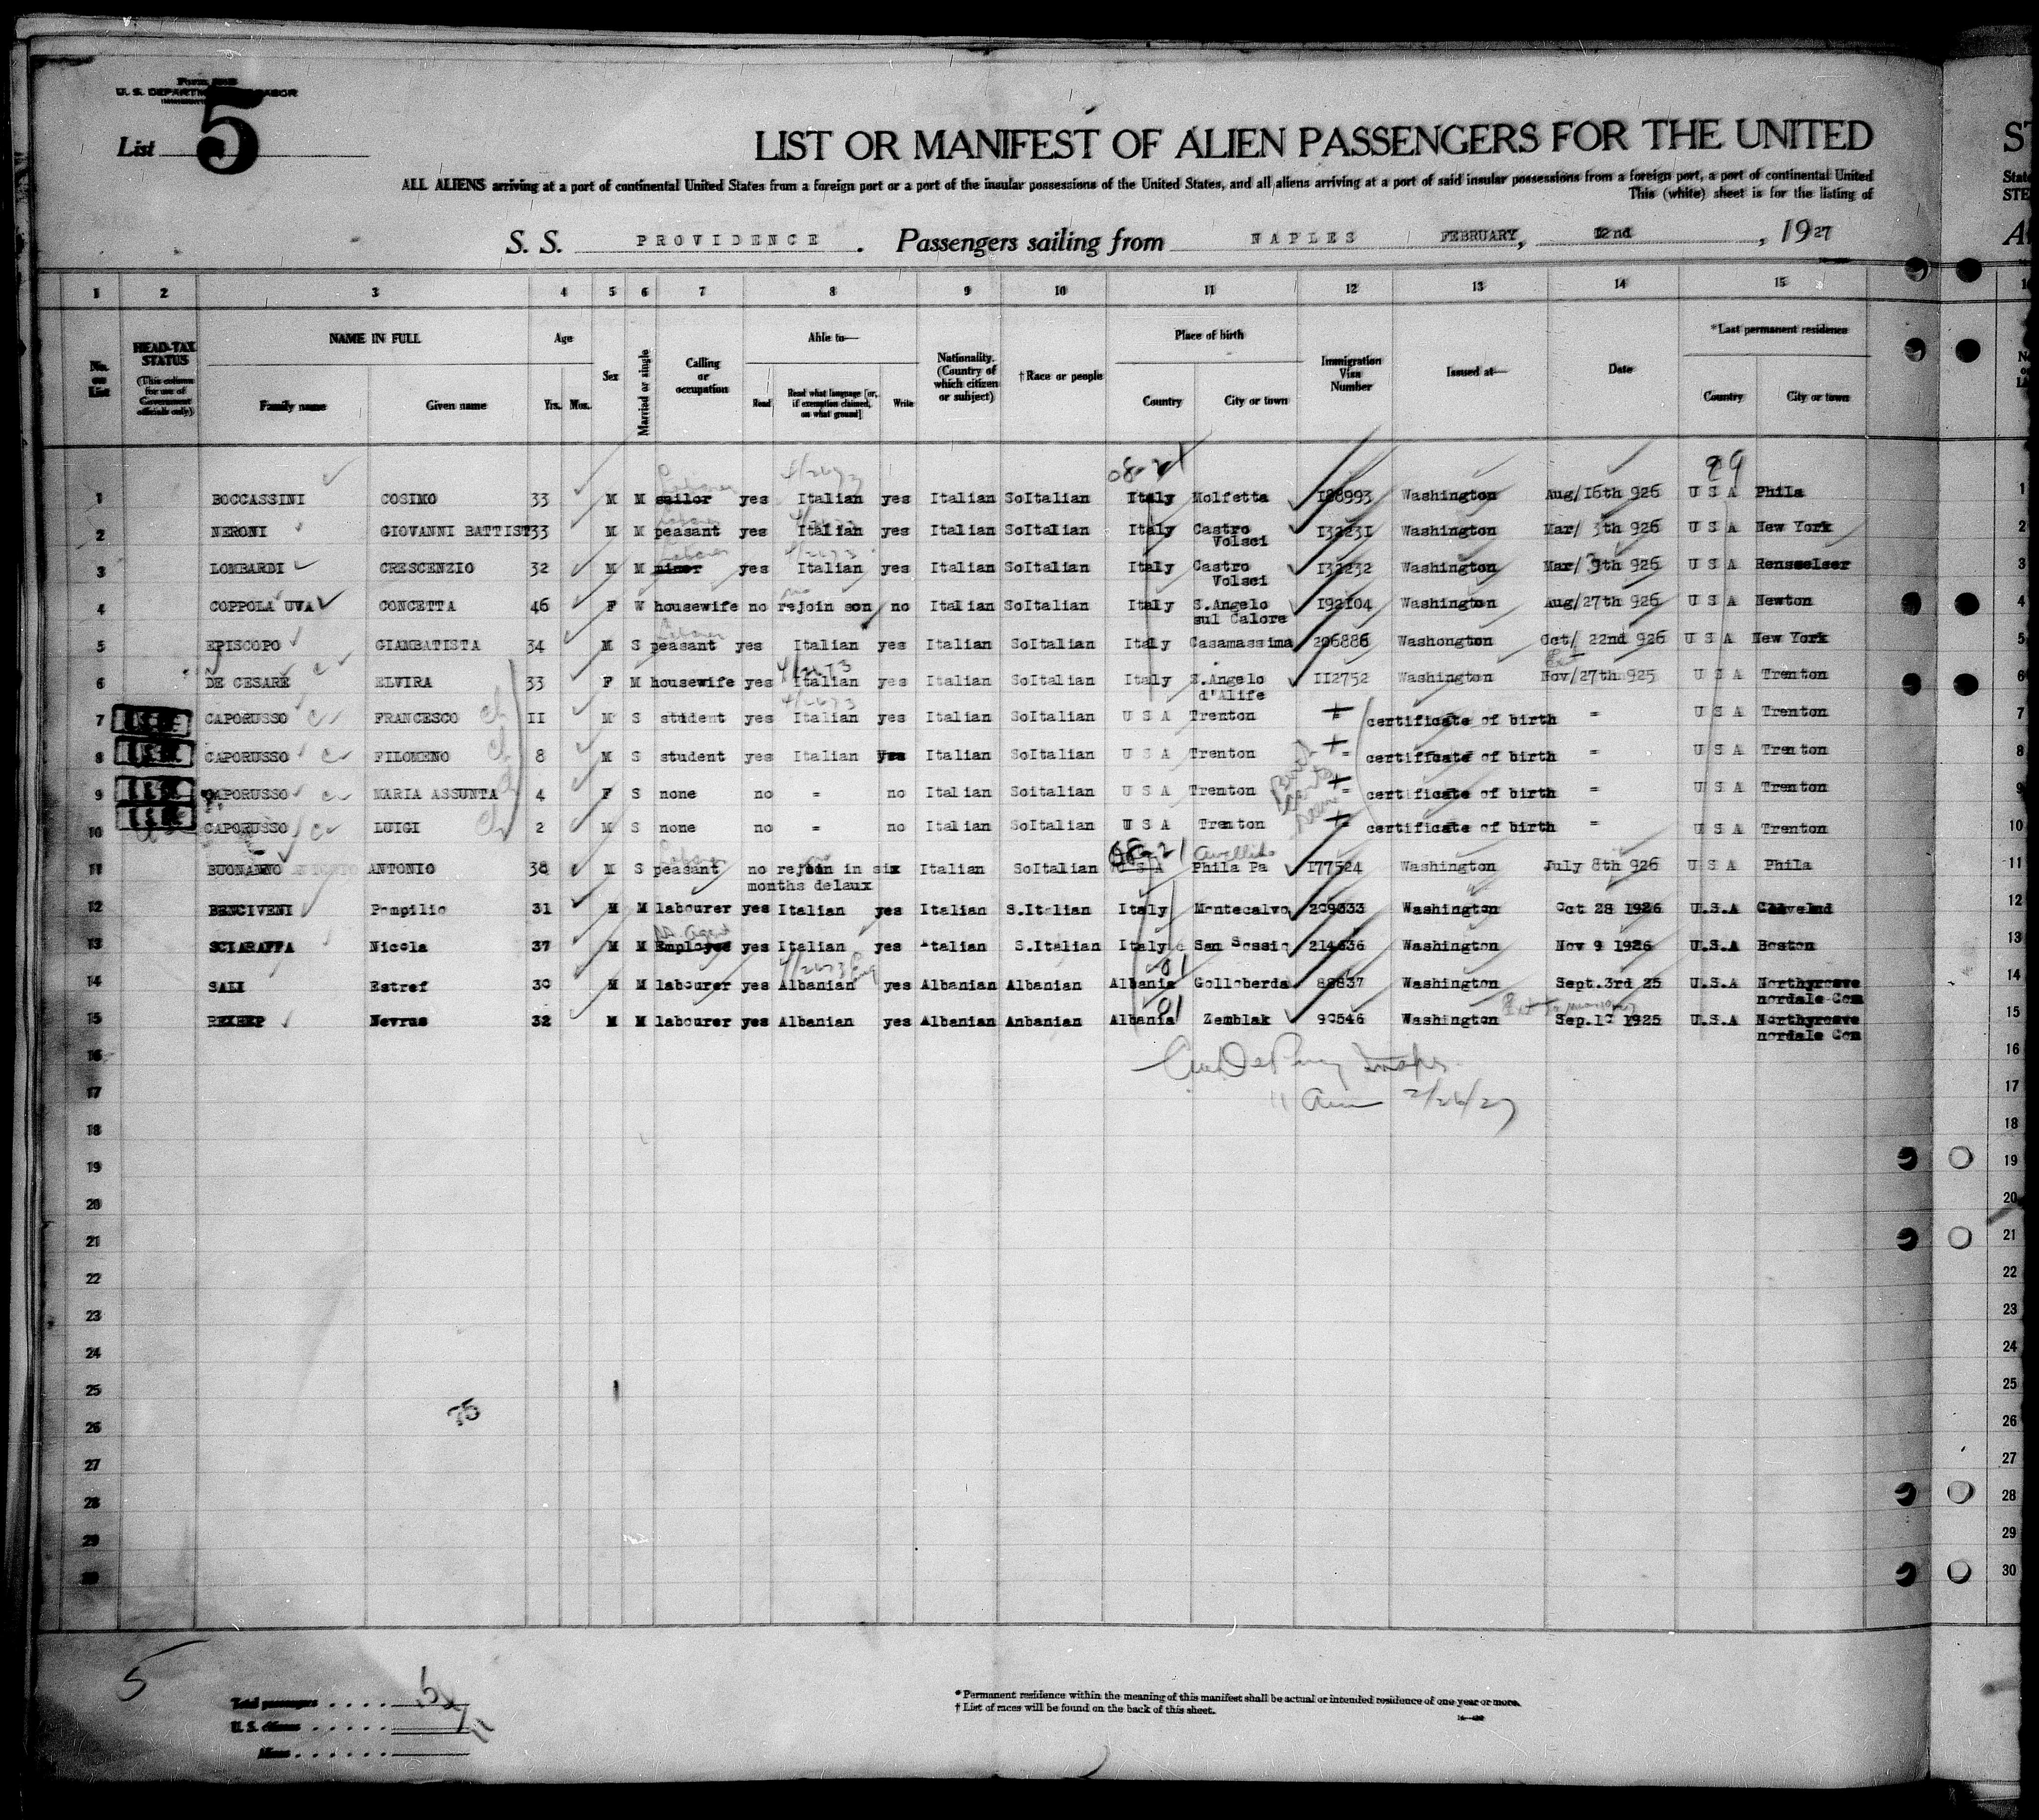 Form
U. S. DEPARTMENT OF LABOR
List 5
LIST OR MANIFEST OF ALIEN PASSENGERS FOR THE UNITED
ALL ALIENS arriving at a port of continental United States from a foreign port or a port of the insular possessions of the United States, and all aliens arriving at a port of said insular possessions from a foreign port, a port of continental United
This (white) sheet is for the listing of
S. S. PROVIDENCE. Passengers sailing from NAPLES FEBRUARY, 12nd, 1927
1 2 3 4 5 6 7 8 9 10 11 12 13 14 15
No. on List
HEAD-TAX STATUS (This column for use of Government officials only)
NAME IN FULL Family name Given name
Age Yrs. Mos.
Sex
Married or single
Calling or occupation
Able to— Read Read what language [or, if exemption claimed, on what ground] Write
Nationality. (Country of which citizen or subject)
†Race or people
Place of birth Country City or town
Immigration Visa Number
Issued at—
Date
*Last permanent residence Country City or town
08-21 29
1 BOCCASSINI COSIMO 33 M M sailor yes Italian yes Italian SoItalian Italy Molfetta 188993 Washington Aug/16th 926 U S A Phila 1
2 NERONI GIOVANNI BATTIST 33 M M peasant yes Italian yes Italian SoItalian Italy Castro Volsci 132231 Washington Mar/ 3th 926 U S A New York 2
3 LOMBARDI CRESCENZIO 32 M M miner yes Italian yes Italian SoItalian Italy Castro Volsci 132232 Washington Mar/ 9th 926 U S A Rensselser 3
4 COPPOLA UVA CONCETTA 46 F W housewife no rejoin son no Italian SoItalian Italy S.Angelo sul Calore 192104 Washington Aug/27th 926 U S A Newton 4
5 EPISCOPO GIAMBATISTA 34 M S peasant yes Italian yes Italian SoItalian Italy Casamassima 206886 Washongton Oct/ 22nd 926 U S A New York 5
6 DE CESARE ELVIRA 33 F M housewife yes Italian yes Italian SoItalian Italy S.Angelo d'Alife 112752 Washington Nov/27th 925 U S A Trenton 6
7 CAPORUSSO FRANCESCO 11 M S student yes Italian yes Italian SoItalian U S A Trenton = certificate of birth = U S A Trenton 7
8 CAPORUSSO FILOMENO 8 M S student yes Italian yes Italian SoItalian U S A Trenton = certificate of birth = U S A Trenton 8
9 CAPORUSSO MARIA ASSUNTA 4 F S none no = no Italian Soitalian U S A Trenton = certificate of birth = U S A Trenton 9
10 CAPORUSSO LUIGI 2 M S none no = no Italian SoItalian U S A Trenton = certificate of birth = U S A Trenton 10
08-21 Avellino
11 BUONANNO ANTONIO 38 M S peasant no rejoin in six months delaux Italian SoItalian U S A Phila Pa 177524 Washington July 8th 926 U S A Phila 11
12 BENCIVENI Pompilio 31 M M labourer yes Italian yes Italian S.Italian Italy Montecalvo 209633 Washington Oct 28 1926 U.S.A Cleveland 12
13 SCIARAFFA Nicola 37 M M Employee yes Italian yes Italian S.Italian Italy San Sossio 214636 Washington Nov 9 1926 U.S.A Boston 13
14 SALI Estref 30 M M labourer yes Albanian yes Albanian Albanian Albania Golloberda 88837 Washington Sept.3rd 25 U.S.A Northyrosve nordale Con 14
15 REXHEP Nevrus 32 M M labourer yes Albanian yes Albanian Anbanian Albania Zemblak 90546 Washington Sep.10 1925 U.S.A Northyrosve nordale Con 15
16 16
17 11 am 2/26/27 17
18 18
19 19
20 20
21 21
22 22
23 23
24 24
25 25
26 75 26
27 27
28 28
29 29
30 30
5
Total passengers
U. S. citizens
Aliens
* Permanent residence within the meaning of this manifest shall be actual or intended residence of one year or more.
† List of races will be found on the back of this sheet.